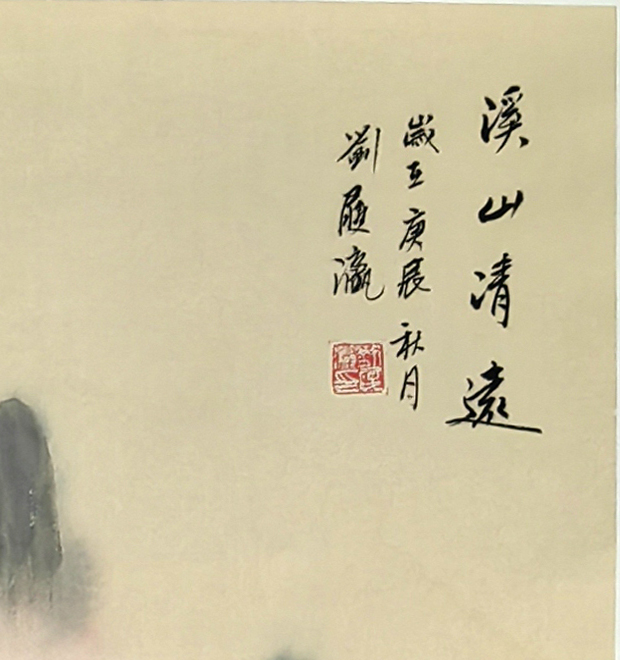 溪山清遠
歲在庚辰秋月
劉展瀛